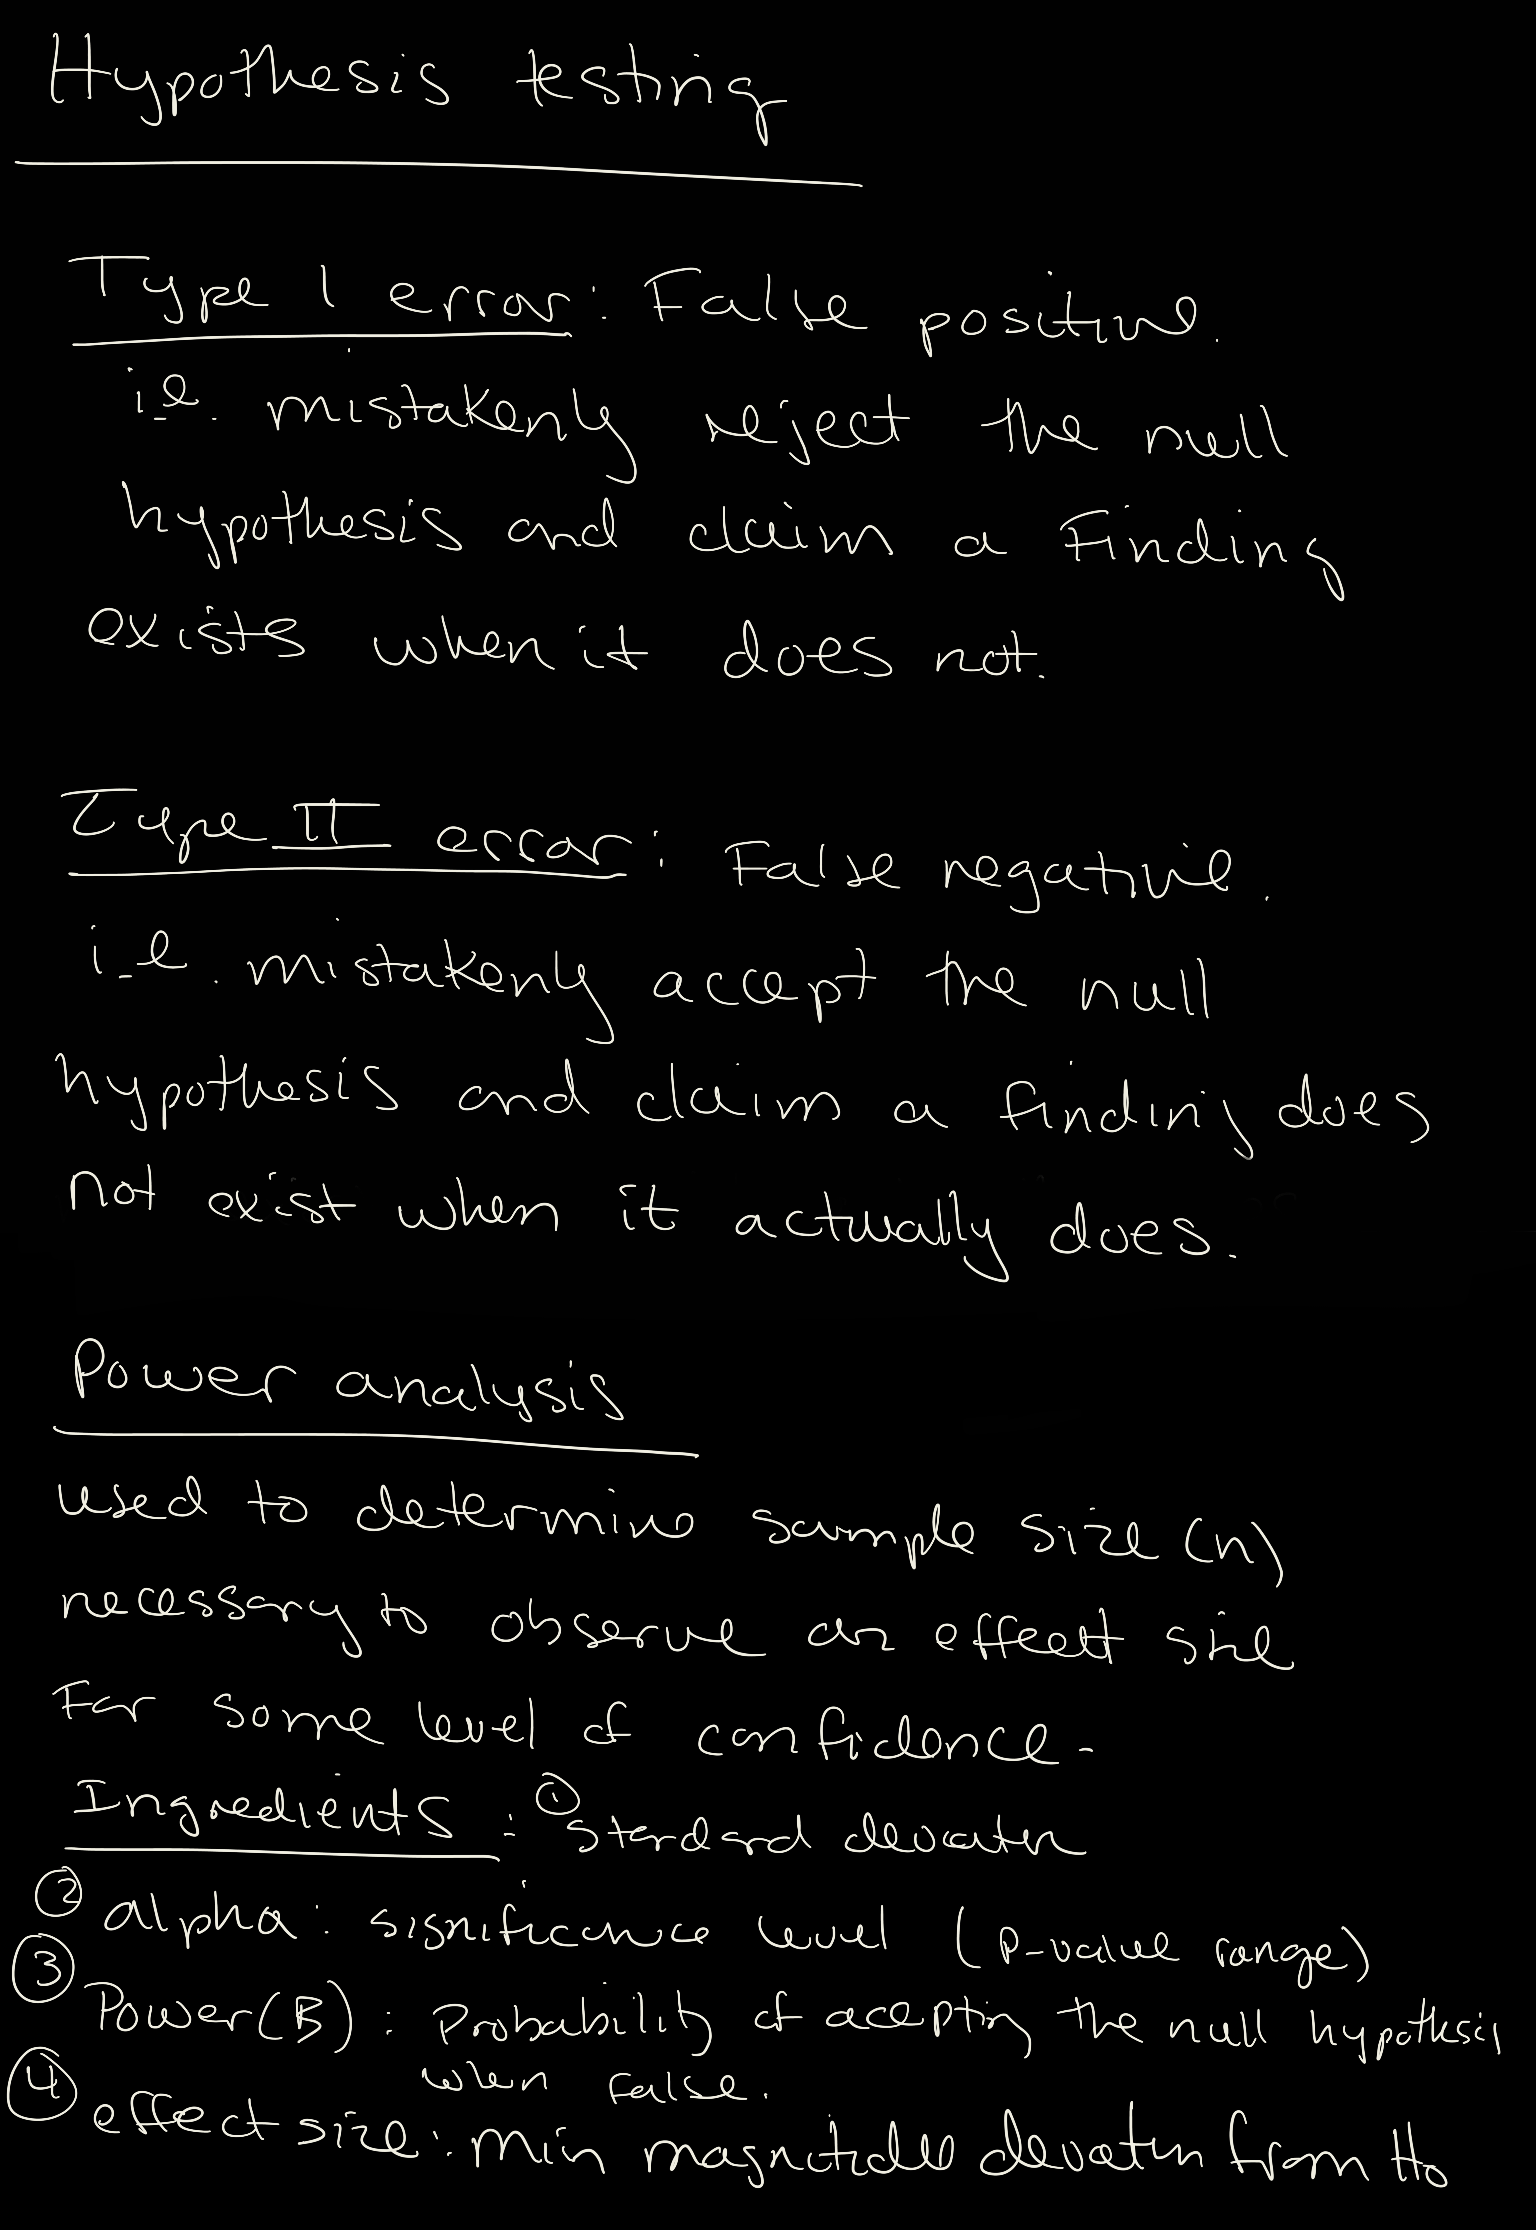 Hypothesis testing
Type I error: False positive.
i.e. mistakenly reject the null
hypothesis and claim a finding
exists when it does not.
Type II error: False negative.
i.e. mistakenly accept the null
hypothesis and claim a finding does
not exist when it actually does.
Power analysis
used to determine sample size (n)
necessary to observe an effect size
For some level of confidence.
Ingredients: ① standard deviation
② alpha: significance level (p-value range)
③ Power(B): Probability of accepting the null hypothesis
when false.
④ effect size: min magnitude deviation from H₀